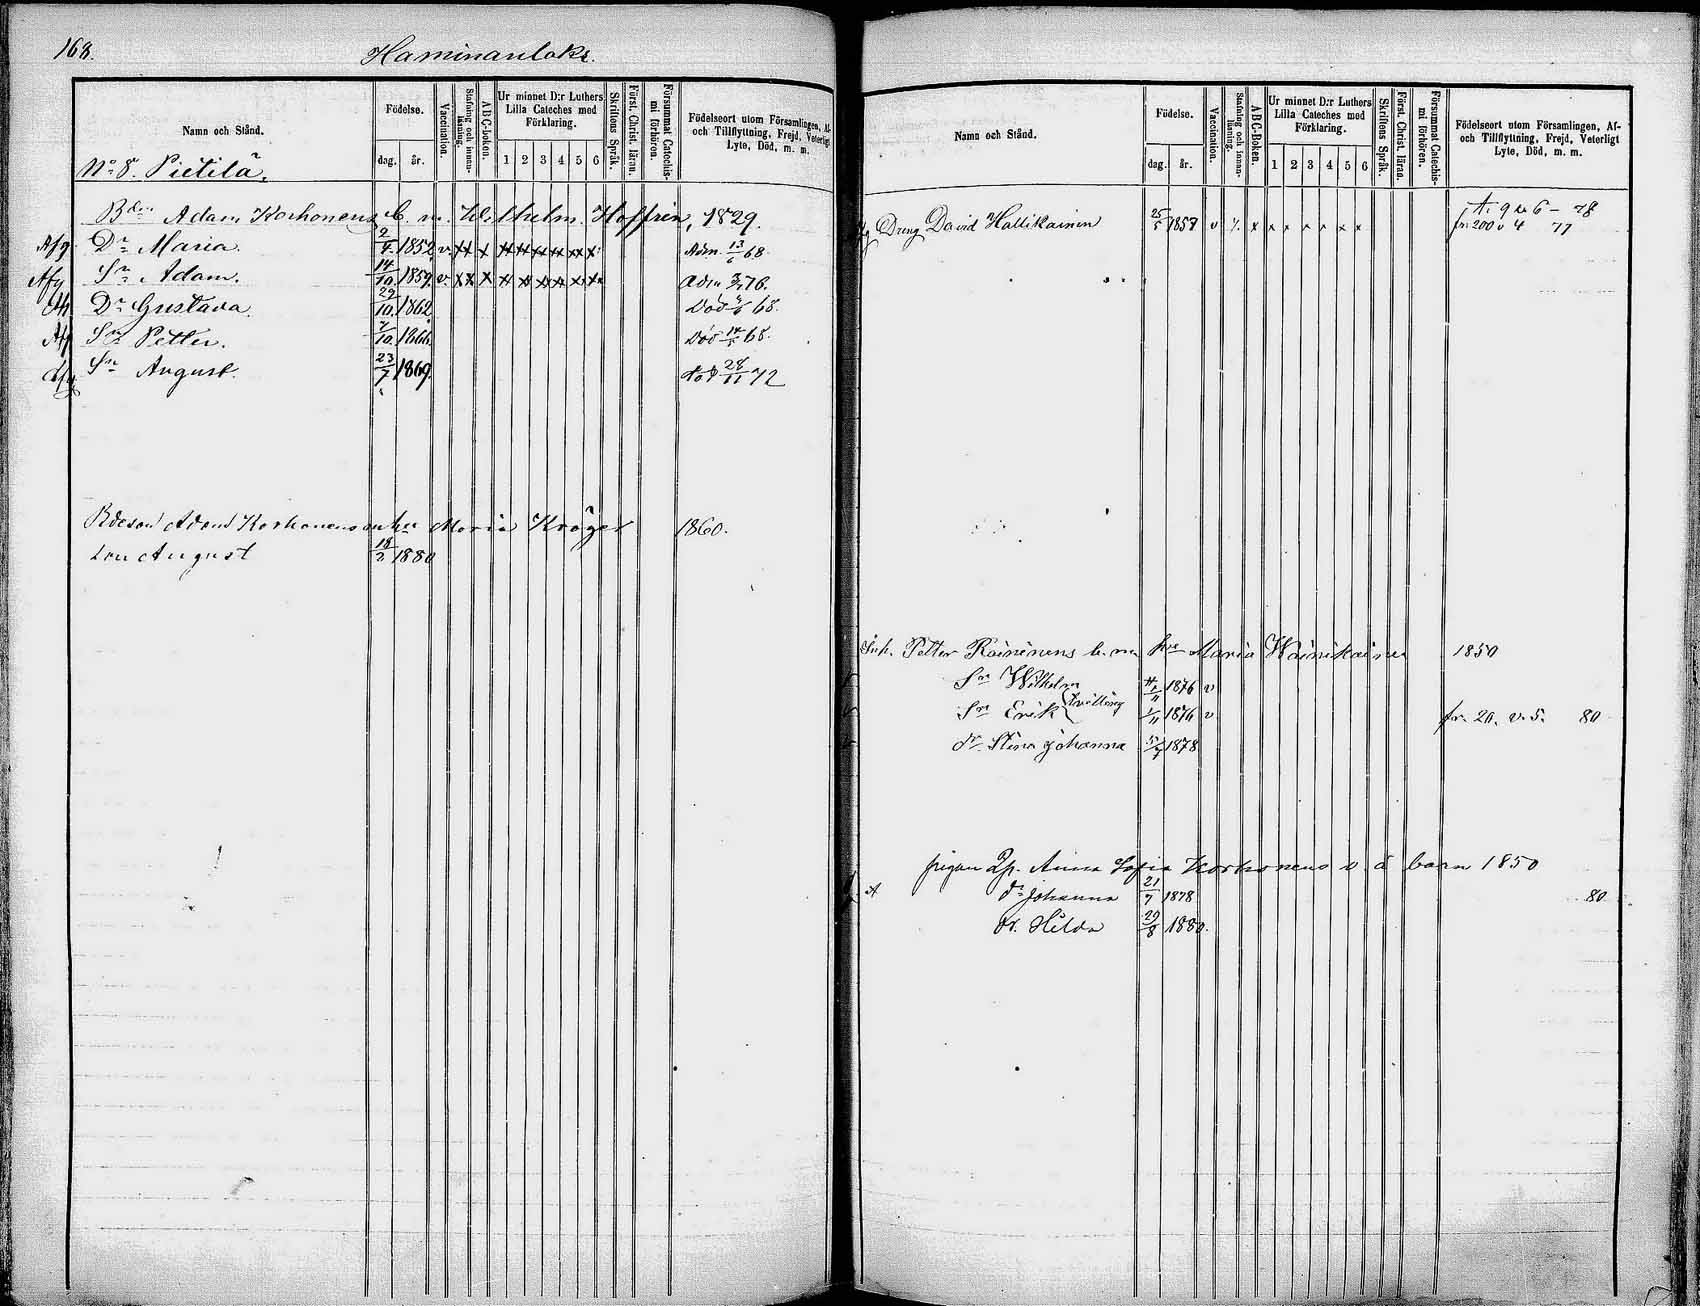 168.
Haminanlaks.
Namn och Stånd.
Födelse.
dag. år.
Vaccination.
Stafning och innan-läsning.
ABC-boken.
Ur minnet D:r Luthers Lilla Cateches med Förklaring.
1 2 3 4 5 6
Skriftens Språk.
Först. Christ. läran.
Försummat Catechis-mi förhören.
Födelseort utom Församlingen, Af- och Tillflyttning, Frejd, Veterligt Lyte, Död, m. m.
No 8. Pietilä.
Bden Adam Korhonens b. m. Wilhelm. Hoffrén, 1829.
Afg Dr Maria. 2/4. 1852 v. Adm. 13/6 68.
Afg Sn Adam. 14/10. 1859. v. Adm 3/7 76.
Dr Gustava. 29/10. 1862 Död 68.
Afg Sn Petter. 7/10. 1866 Död 14/5 68.
Afg Sn August. 23/7 1869. död 28/11 72
Bdeson Adam Korhonens hu Maria Kröger 1860.
Son August 18/2 1880
Namn och Stånd.
Födelse.
dag. år.
Vaccination.
Stafning och innan-läsning.
ABC-Boken.
Ur minnet D:r Luthers Lilla Cateches med Förklaring.
1 2 3 4 5 6
Skriftens Språk.
Först. Christ. läran.
Försummat Catechis-mi förhören.
Födelseort utom Församlingen, Af- och Tillflyttning, Frejd, Veterligt Lyte, Död, m. m.
t. 9 u 6 - 78
Dreng David Hallikainen 25/5 1857 v fr. 200 v 4 77
Inh. Petter Räinінens b. m hu Maria Wäinikäinen 1850
Sn Wilhelm 1/11 1876 v
Sn Erik tvilling 1/11 1876 v fr. 20. v. 5. 80
dr. Stina Johanna 5/7 1878
pigan Lp. Anna Sofia Korhonens o. ä barn 1850
dr Johanna 21/7 1878 80
dr. Hilda 29/8 1880.